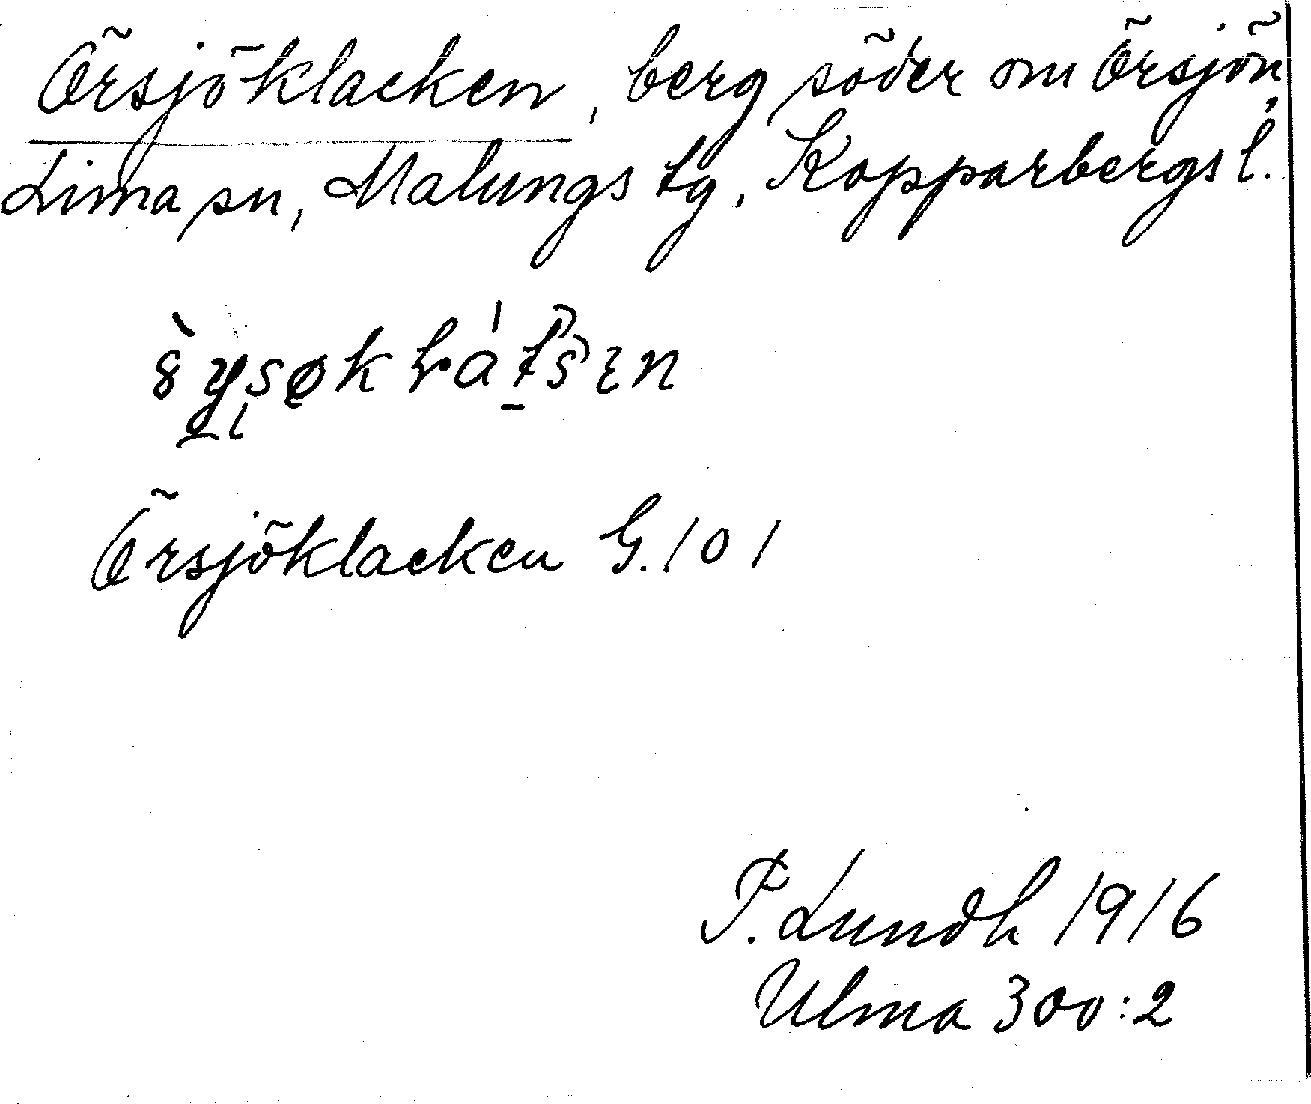 Örsjöklacken, berg söder om Örsjön,
Lima sn, Malungs tg, Kopparbergs l.
Örsjöklacken G. 101
P. Lundh 1916
Ulma 300:2